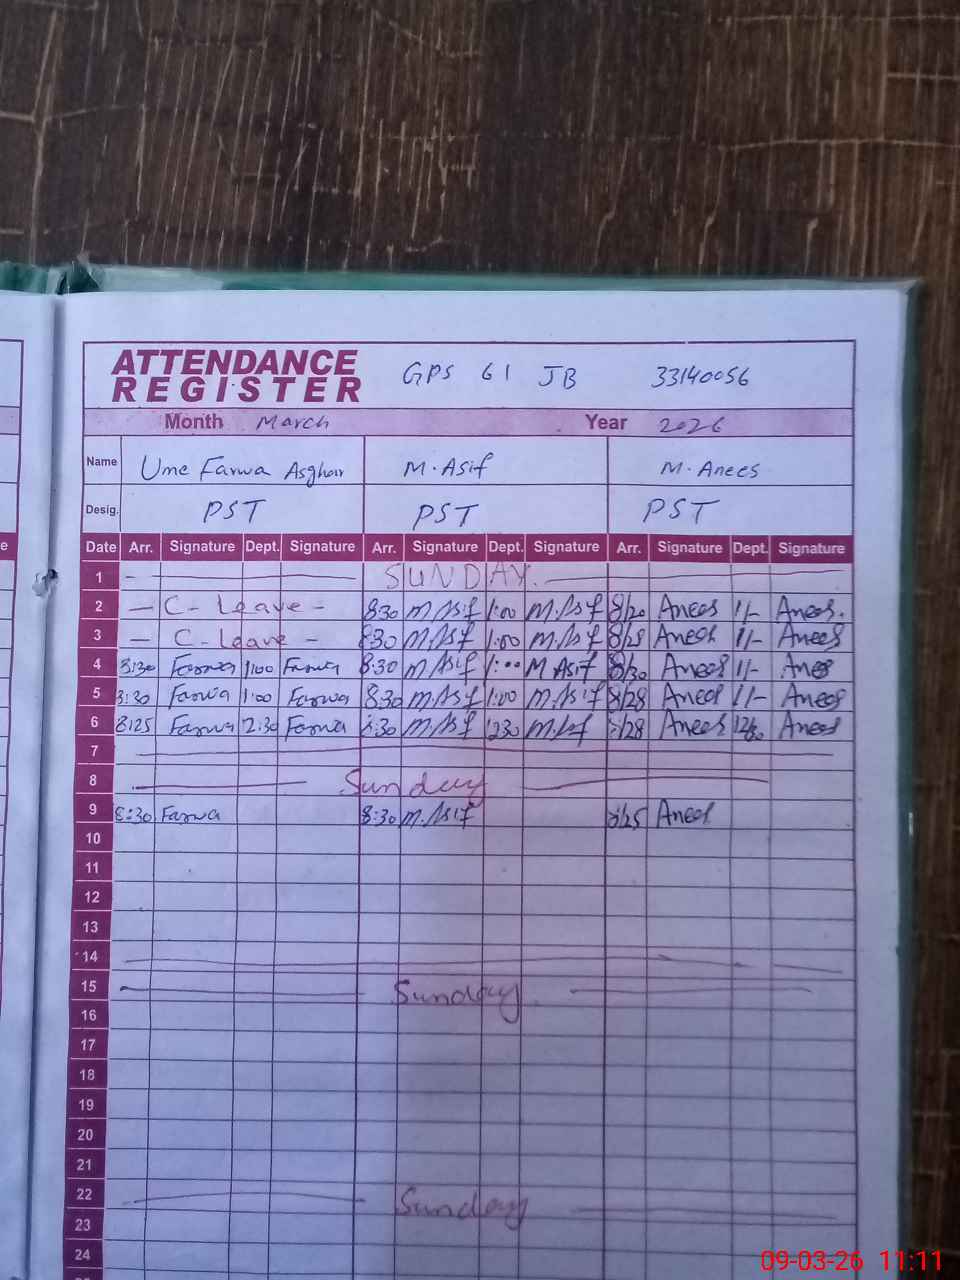 ATTENDANCE
REGISTER
GPS 61 JB 33140056
Month March Year 2026
Name Ume Farwa Asghar M.Asif M.Anees
Desig. PST PST PST
e Date Arr. Signature Dept. Signature Arr. Signature Dept. Signature Arr. Signature Dept. Signature
1 SUNDAY.
2 C-Leave- 8:30 M.Asif 1:00 M.Asif 8/20 Anees 1/- Anees.
3 C-Leave- 8:30 M.Asif 1:00 M.Asif 8/28 Anees 1/- Anees
4 8:30 Farwa 1:00 Farwa 8:30 M.Asif 1:00 M Asif 8/30 Anees 1/- Anees
5 8:30 Farwa 1:00 Farwa 8:30 M.Asif 1:00 M.Asif 8/28 Anees 1/- Anees
6 8:25 Farwa 12:30 Farwa 8:30 M.Asif 1230 M.Asif 8/28 Anees 12/30 Anees
7
8 Sunday
9 8:30 Farwa 8:30 M.Asif 8/25 Anees
10
11
12
13
14
15 Sunday
16
17
18
19
20
21
22 Sunday
23
24
09-03-26 11:11